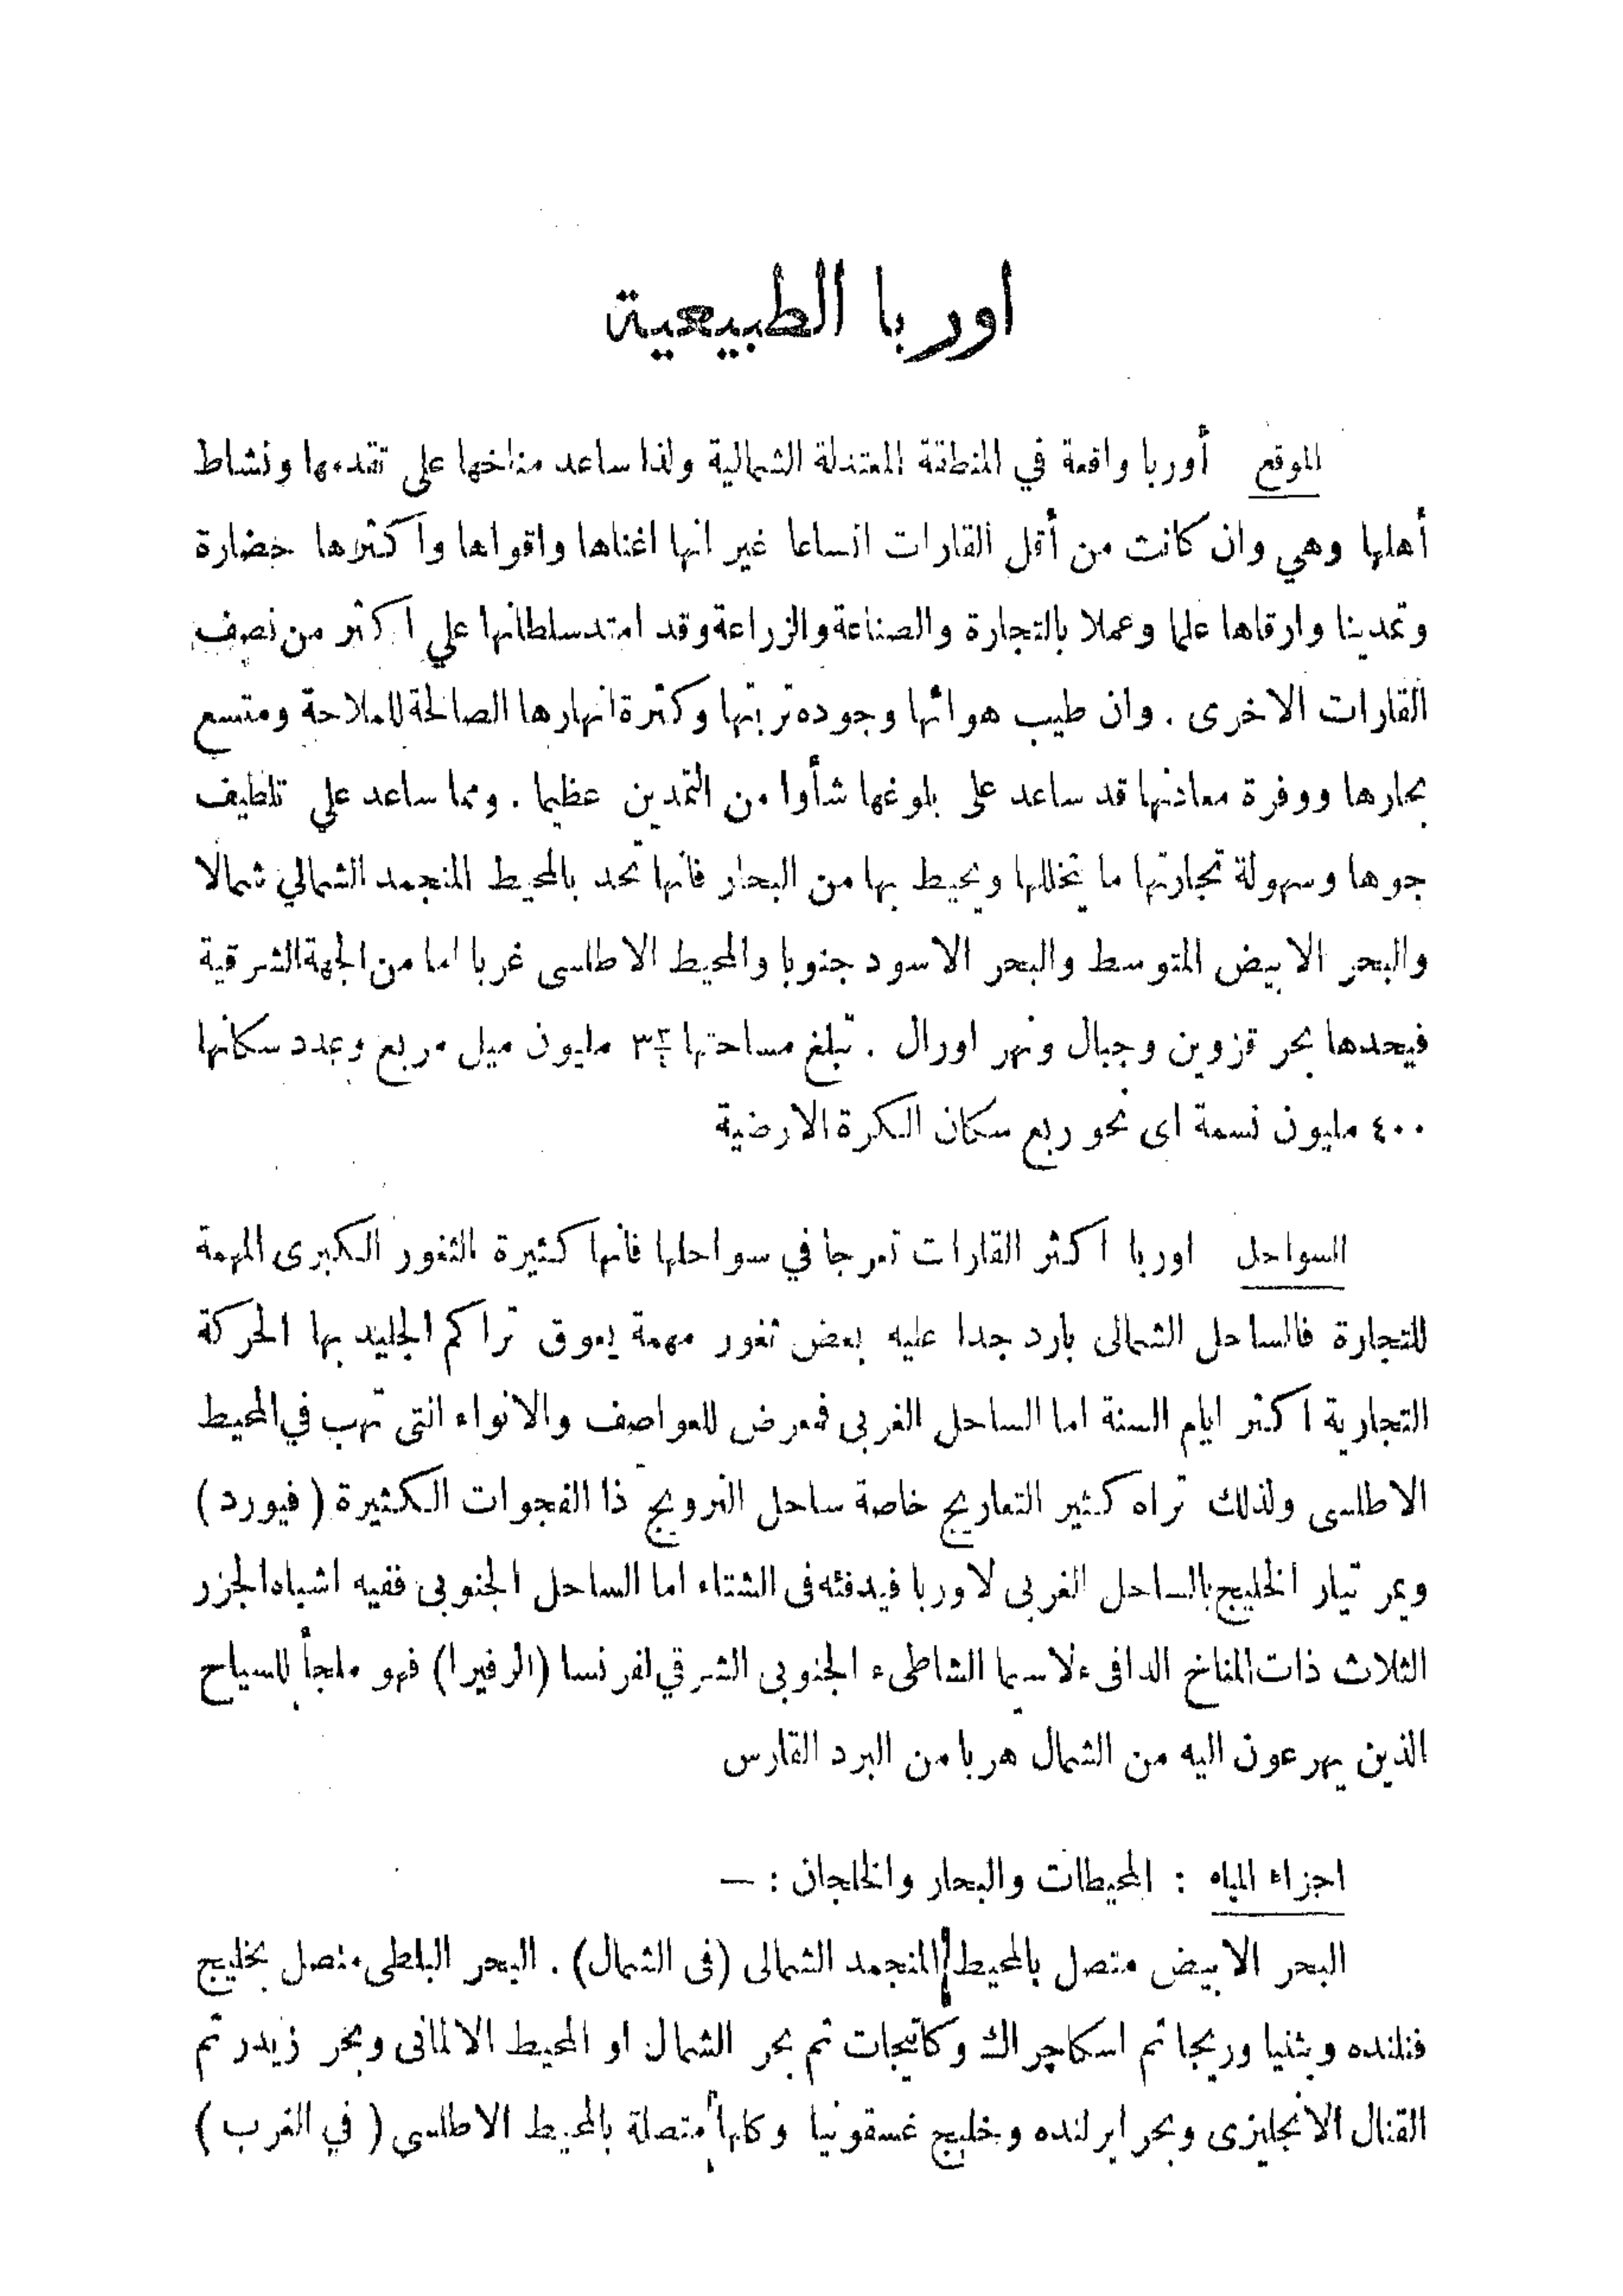 اوربا الطبيعية
الموقع أوربا واقعة في المنطقة المعتدلة الشمالية ولذا ساعد مناخها على تقدمها ونشاط
أهلها وهي وان كانت من أقل القارات اتساعا غير انها اغناها واقواها واكثرها حضارة
وتمدينا وارقاها علما وعملا بالتجارة والصناعة والزراعة وقد امتد سلطانها علي اكثر من نصف
القارات الاخرى . وان طيب هوائها وجوده تربتها وكثرة انهارها الصالحة للملاحة ومتسع
بحارها ووفرة معادنها قد ساعد على بلوغها شأوا من التمدين عظيما . ومما ساعد علي تلطيف
جوها وسهولة تجارتها ما يتخللها ويحيط بها من البحار فانها تحد بالمحيط المنجمد الشمالي شمالا
والبحر الابيض المتوسط والبحر الاسود جنوبا والمحيط الاطلسى غربا اما من الجهة الشرقية
فيحدها بحر قزوين وجبال ونهر اورال . تبلغ مساحتها ٣ ٣/٤ مليون ميل مربع وعدد سكانها
٤٠٠ مليون نسمة اى نحو ربع سكان الكرة الارضية
السواحل اوربا اكثر القارات تعرجا في سواحلها فانها كثيرة الثغور الكبرى المهمة
للتجارة فالساحل الشمالى بارد جدا عليه بعض ثغور مهمة يعوق تراكم الجليد بها الحركة
التجارية اكثر ايام السنة اما الساحل الغربى فمعرض للعواصف والانواء التى تهب في المحيط
الاطلسى ولذلك تراه كثير التعاريج خاصة ساحل النرويج ذا الفجوات الكثيرة ( فيورد )
ويمر تيار الخليج بالساحل الغربى لاوربا فيدفئه فى الشتاء اما الساحل الجنوبى ففيه اشباه الجزر
الثلاث ذات المناخ الدافىء لاسيما الشاطىء الجنوبى الشرقي لفرنسا (الرفيرا) فهو ملجأ للسياح
الذين يهرعون اليه من الشمال هربا من البرد القارس
اجزاء المياه : المحيطات والبحار والخلجان : —
البحر الابيض متصل بالمحيط المنجمد الشمالى (فى الشمال) . البحر البلطى متصل بخليج
فنلنده وبثنيا وريجا ثم اسكاجراك وكاتيجات ثم بحر الشمال او المحيط الالمانى وبحر زيدر ثم
القنال الانجليزى وبحر ايرلنده وخليج غسقونيا وكلها متصلة بالمحيط الاطلسي ( في الغرب )